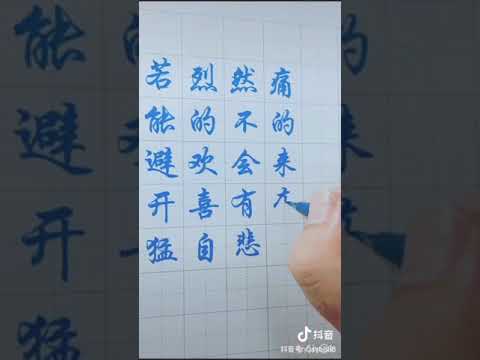 若能避开猛
烈的欢喜自
然不会有悲
痛的来
抖音